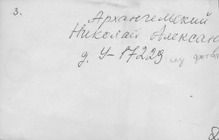 3.
Архангельский
Николай Алексан
д. У-17223